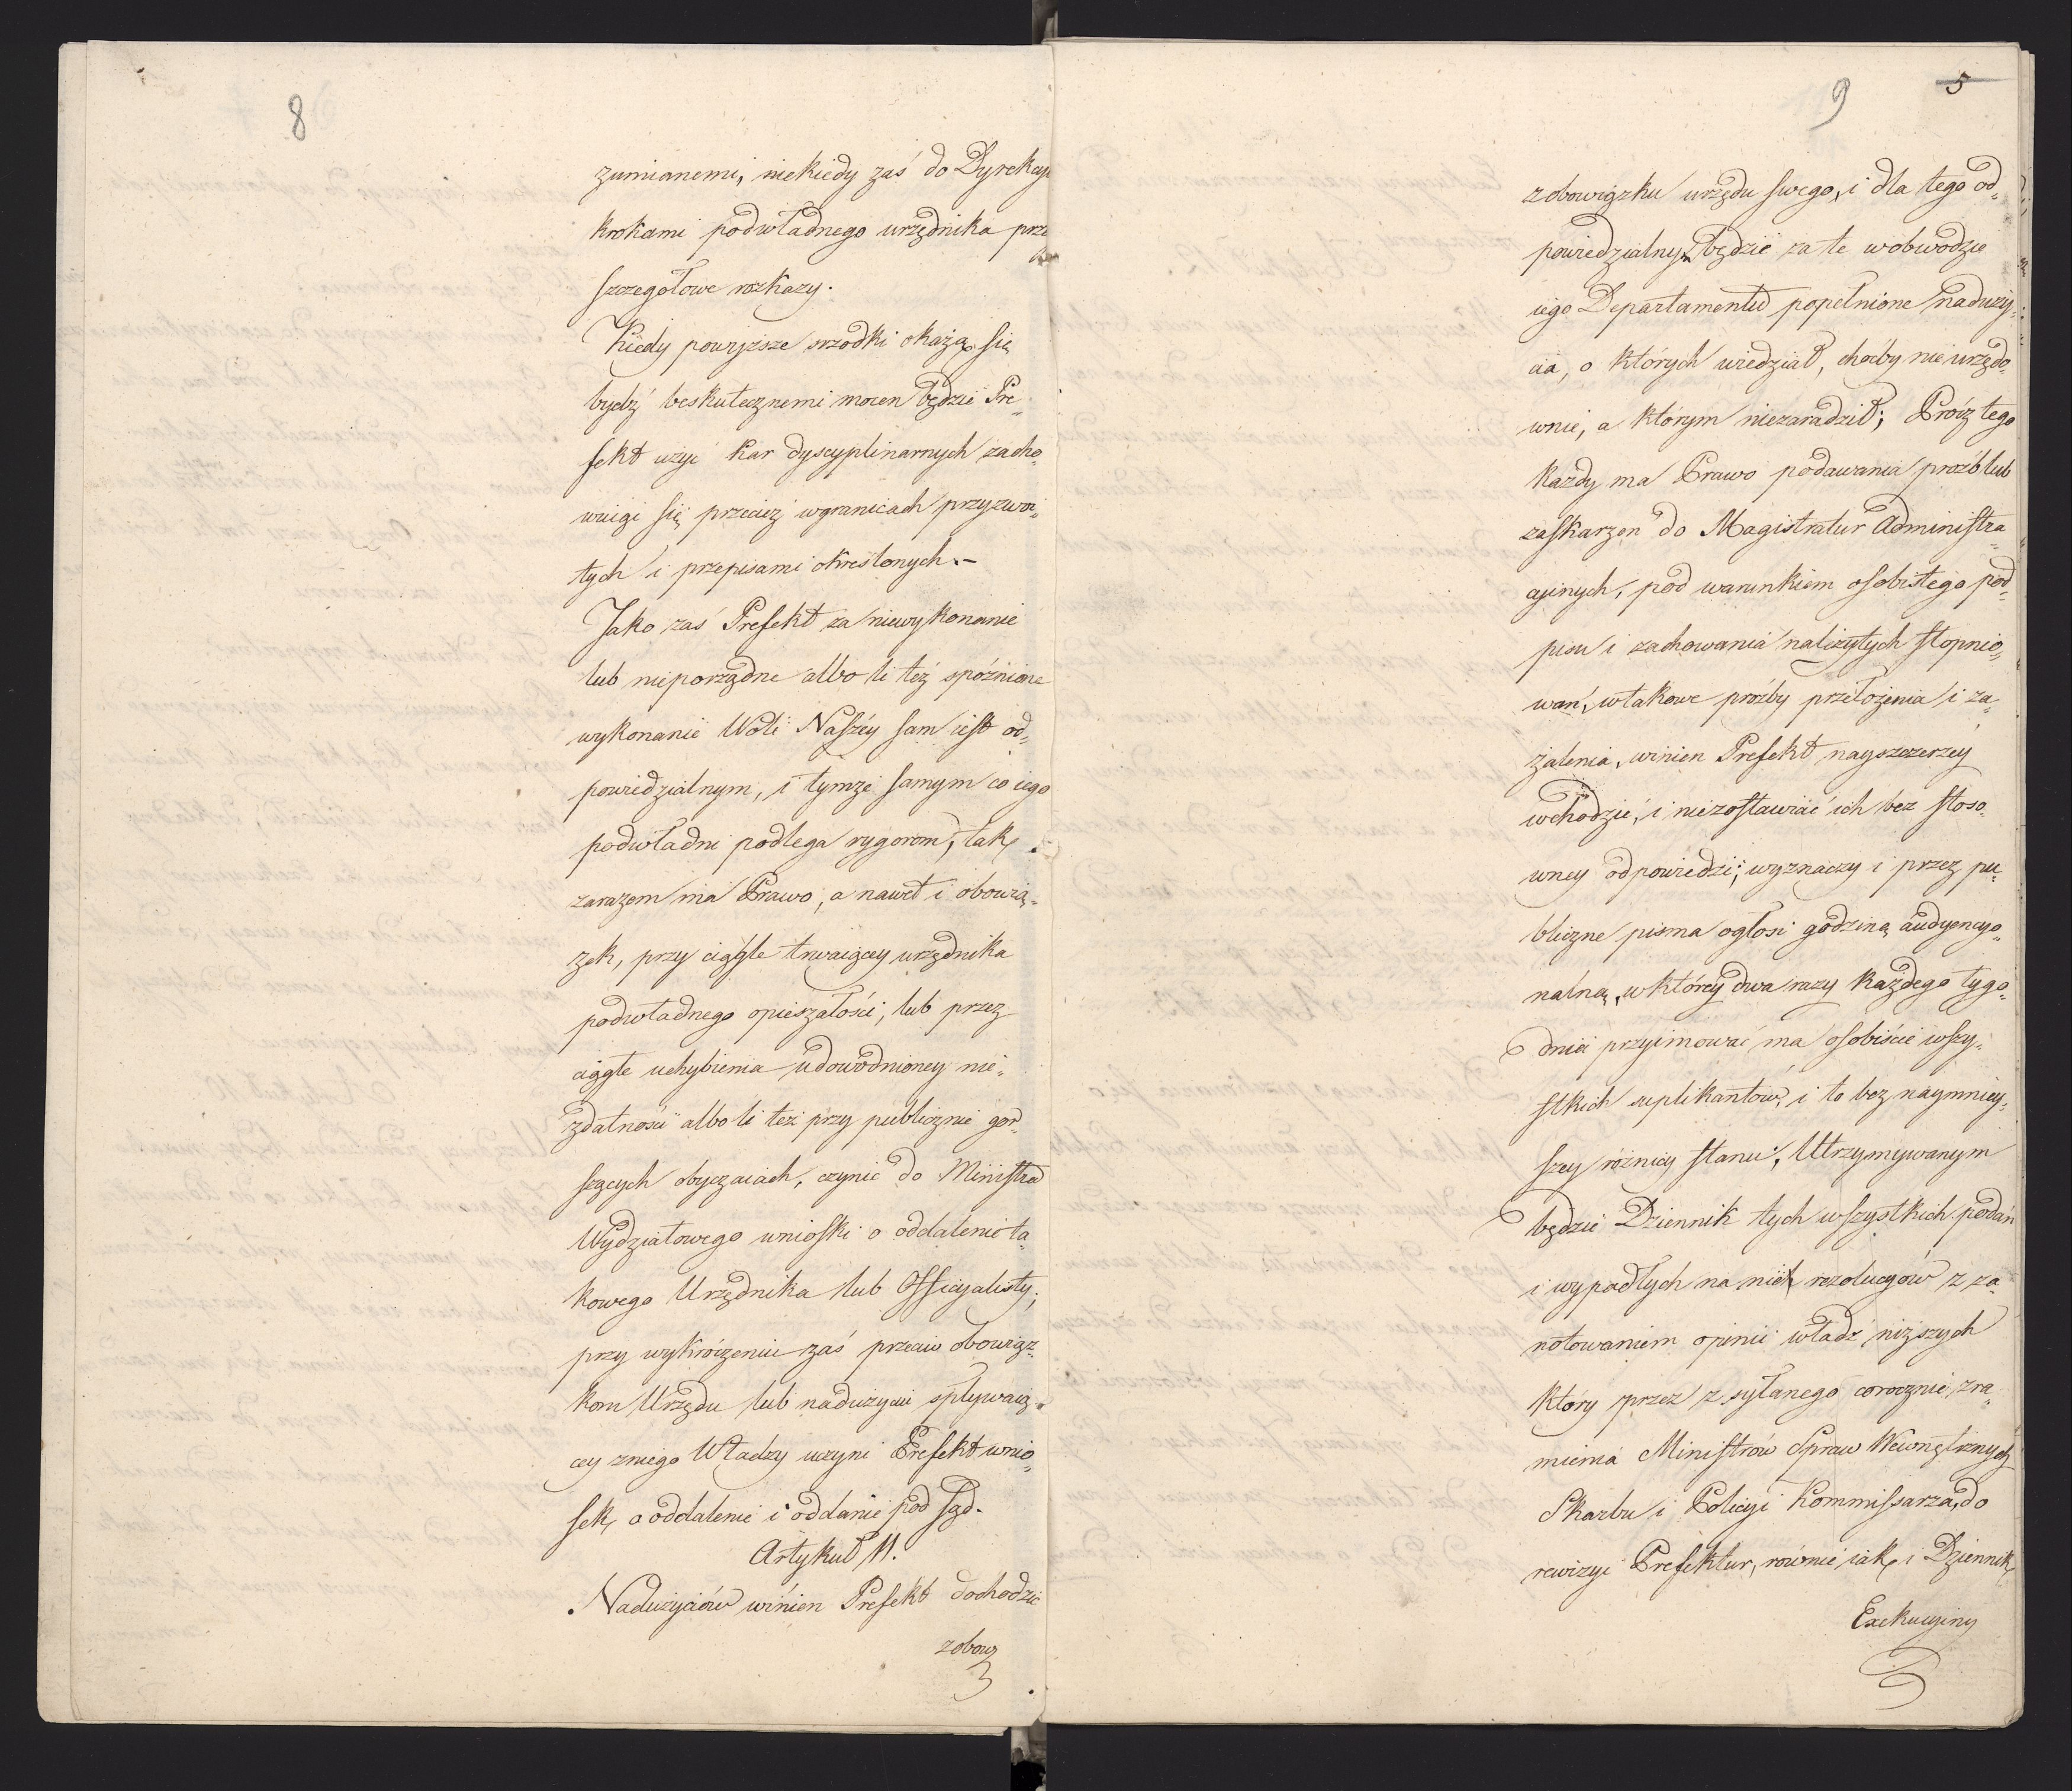 8
zumianemi, niekiedy zaś do Dyrekcyi
krokami podwładnego urzędnika prze
szczegółowe rozkazy.
Kiedy powyższe srzodki okażą się
bydź beskutecznemi mocen będzie Pre„
fekt użyć kar dyscyplinarnych zacho„
wuiąc się przecież wgranicach przyzwoi„
tych i przepisami okreslonych. –
Jako zaś Prefekt za niewykonanie
lub nieporządne albo li też spóźnione
wykonanie Woli Naszéy sam iest od„
powiedzialnym, i tymże samym co iego
podwładni podlega rygorom, tak
zarazem ma Prawo, a nawet i obowią„
zek, przy ciągłe trwaiącey urzędnika
podwładnego opieszałości, lub przez
ciągłe uchybienia udowodnioney nie„
zdatności albo li też przy publicznie gor„
szących obyczaiach, czynić do Ministra
Wydziałowego wnioski o oddalenie ta„
kowego Urzędnika lub Officyalisty;
przy wykróczeniu zaś przeciw obowiąz„
kom Urzędu lub nadużyciu spływaią„
cey zniego Władzy uczyni Prefekt wnio„
sek o oddalenie i oddanie pod sąd.
Artykuł 11.
Nadużyciów winien Prefekt dochodzić
zobow
9 5
zobowiązku urzędu swego, i dla tego od„
powiedzialny będzie za te wobwodzie
iego Departamentu popełnione naduży„
cia, o których wiedział, choćby nie urzędo„
wnie, a którym niezaradził; Prócz tego
każdy ma Prawo podawania proźb lub
zaskarzeń do Magistratur Administra„
cyinych, pod warunkiem osobistego pod„
pisu i zachowania należytych stopnio„
wań, wtakowe proźby przełożenia i za„
żalenia, winien Prefekt nayszczerzey
wchodzić, i niezostawiać ich bez stoso„
wney odpowiedzi; wyznaczy i przez pu„
bliczne pisma ogłosi godzinę audyencyo„
nalną, w którey dwa razy każdego tygo„
dnia przyimować ma osobiście wszy„
stkich suplikantów, i to bez naymniey„
szey różnicy stanu, Utrzymywanym
będzie Dziennik tych wszystkich podań
i wypadłych na nich rezolucyów z za„
notowaniem opinii władz niższych
który przez zsyłanego corocznie zra„
mienia Ministrów Spraw Wewnętrznych
Skarbu i Policyi Kommissarza, do
rewizyi Prefektur, równie iak i Dziennik
Exekucyiny